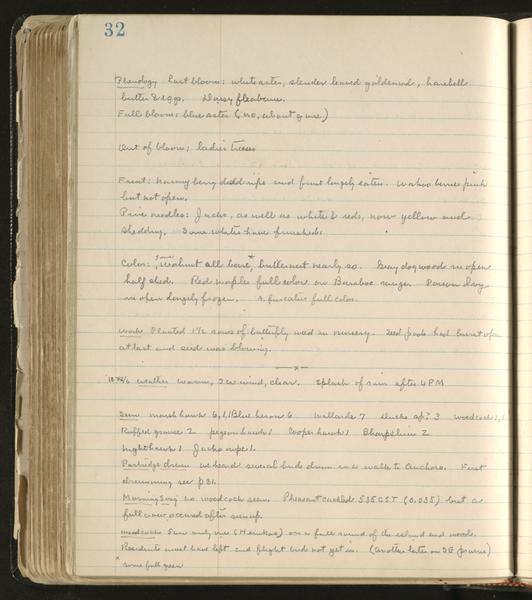 32
Phenology Last bloom: white aster, slender leaved goldenrod, harebell
butter & eggs. Daisy fleabane.
Full bloom: blue aster (no, about gone)
Out of bloom: ladies tresses
Fruit: Nannyberry dead ripe and fruit largely eaten. Wahoo berries pink
but not open.
Pine needles: Jacks, as well as whites & reds, now yellow and
shedding. Some whites have finished.
Color: some walnut all bare,x butternut nearly so. Gray dogwoods in open
half shed. Red maples full color on Baraboo range. Poison ivy
in open largely frozen. full color.
Work Planted 1½ rows of butterfly weed in nursery. Seed pods had burst open
at last and seed was blowing.
x
Weather warm, SW wind, clear. Splash of rain after 4 PM
Seen marsh hawk 6,1,1 Blue heron 6 mallards 7 ducks sp? 3 woodcock 1,1
Ruffed grouse 2 pigeon hawk 1 Cooper hawk 1 Sharpshin 2
Nighthawk 1 Jacksnipe 1.
Partridge drum we heard several birds drum on a walk to Anchors. First
drumming see p 31.
Morning Song no woodcock seen. Pheasant cackled 535 CST (0.035) but a
full crow occurred after sunup.
woodcocks Saw only one on a full round of the island and woods.
Residents must have left and flight birds not yet in. (Another later on SE prairie)
x some full green